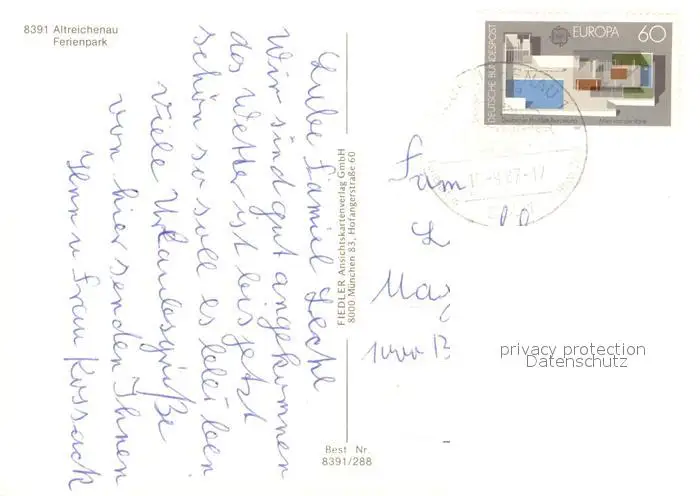 8391 Altreichenau
Ferienpark
Liebe Familie Lechl
Wir sind gut angekommen
das Wetter ist bis jetzt
schön so soll es bleiben
viele Urlaubsgrüße
von hier senden Ihnen
Herr u Frau Kossack
FIEDLER Ansichtskartenverlag GmbH
8000 München 83, Hofangerstraße 60
Best Nr.
8391/288
DEUTSCHE BUNDESPOST
EUROPA 60
Fam
L
1000 B
privacy protection
Datenschutz